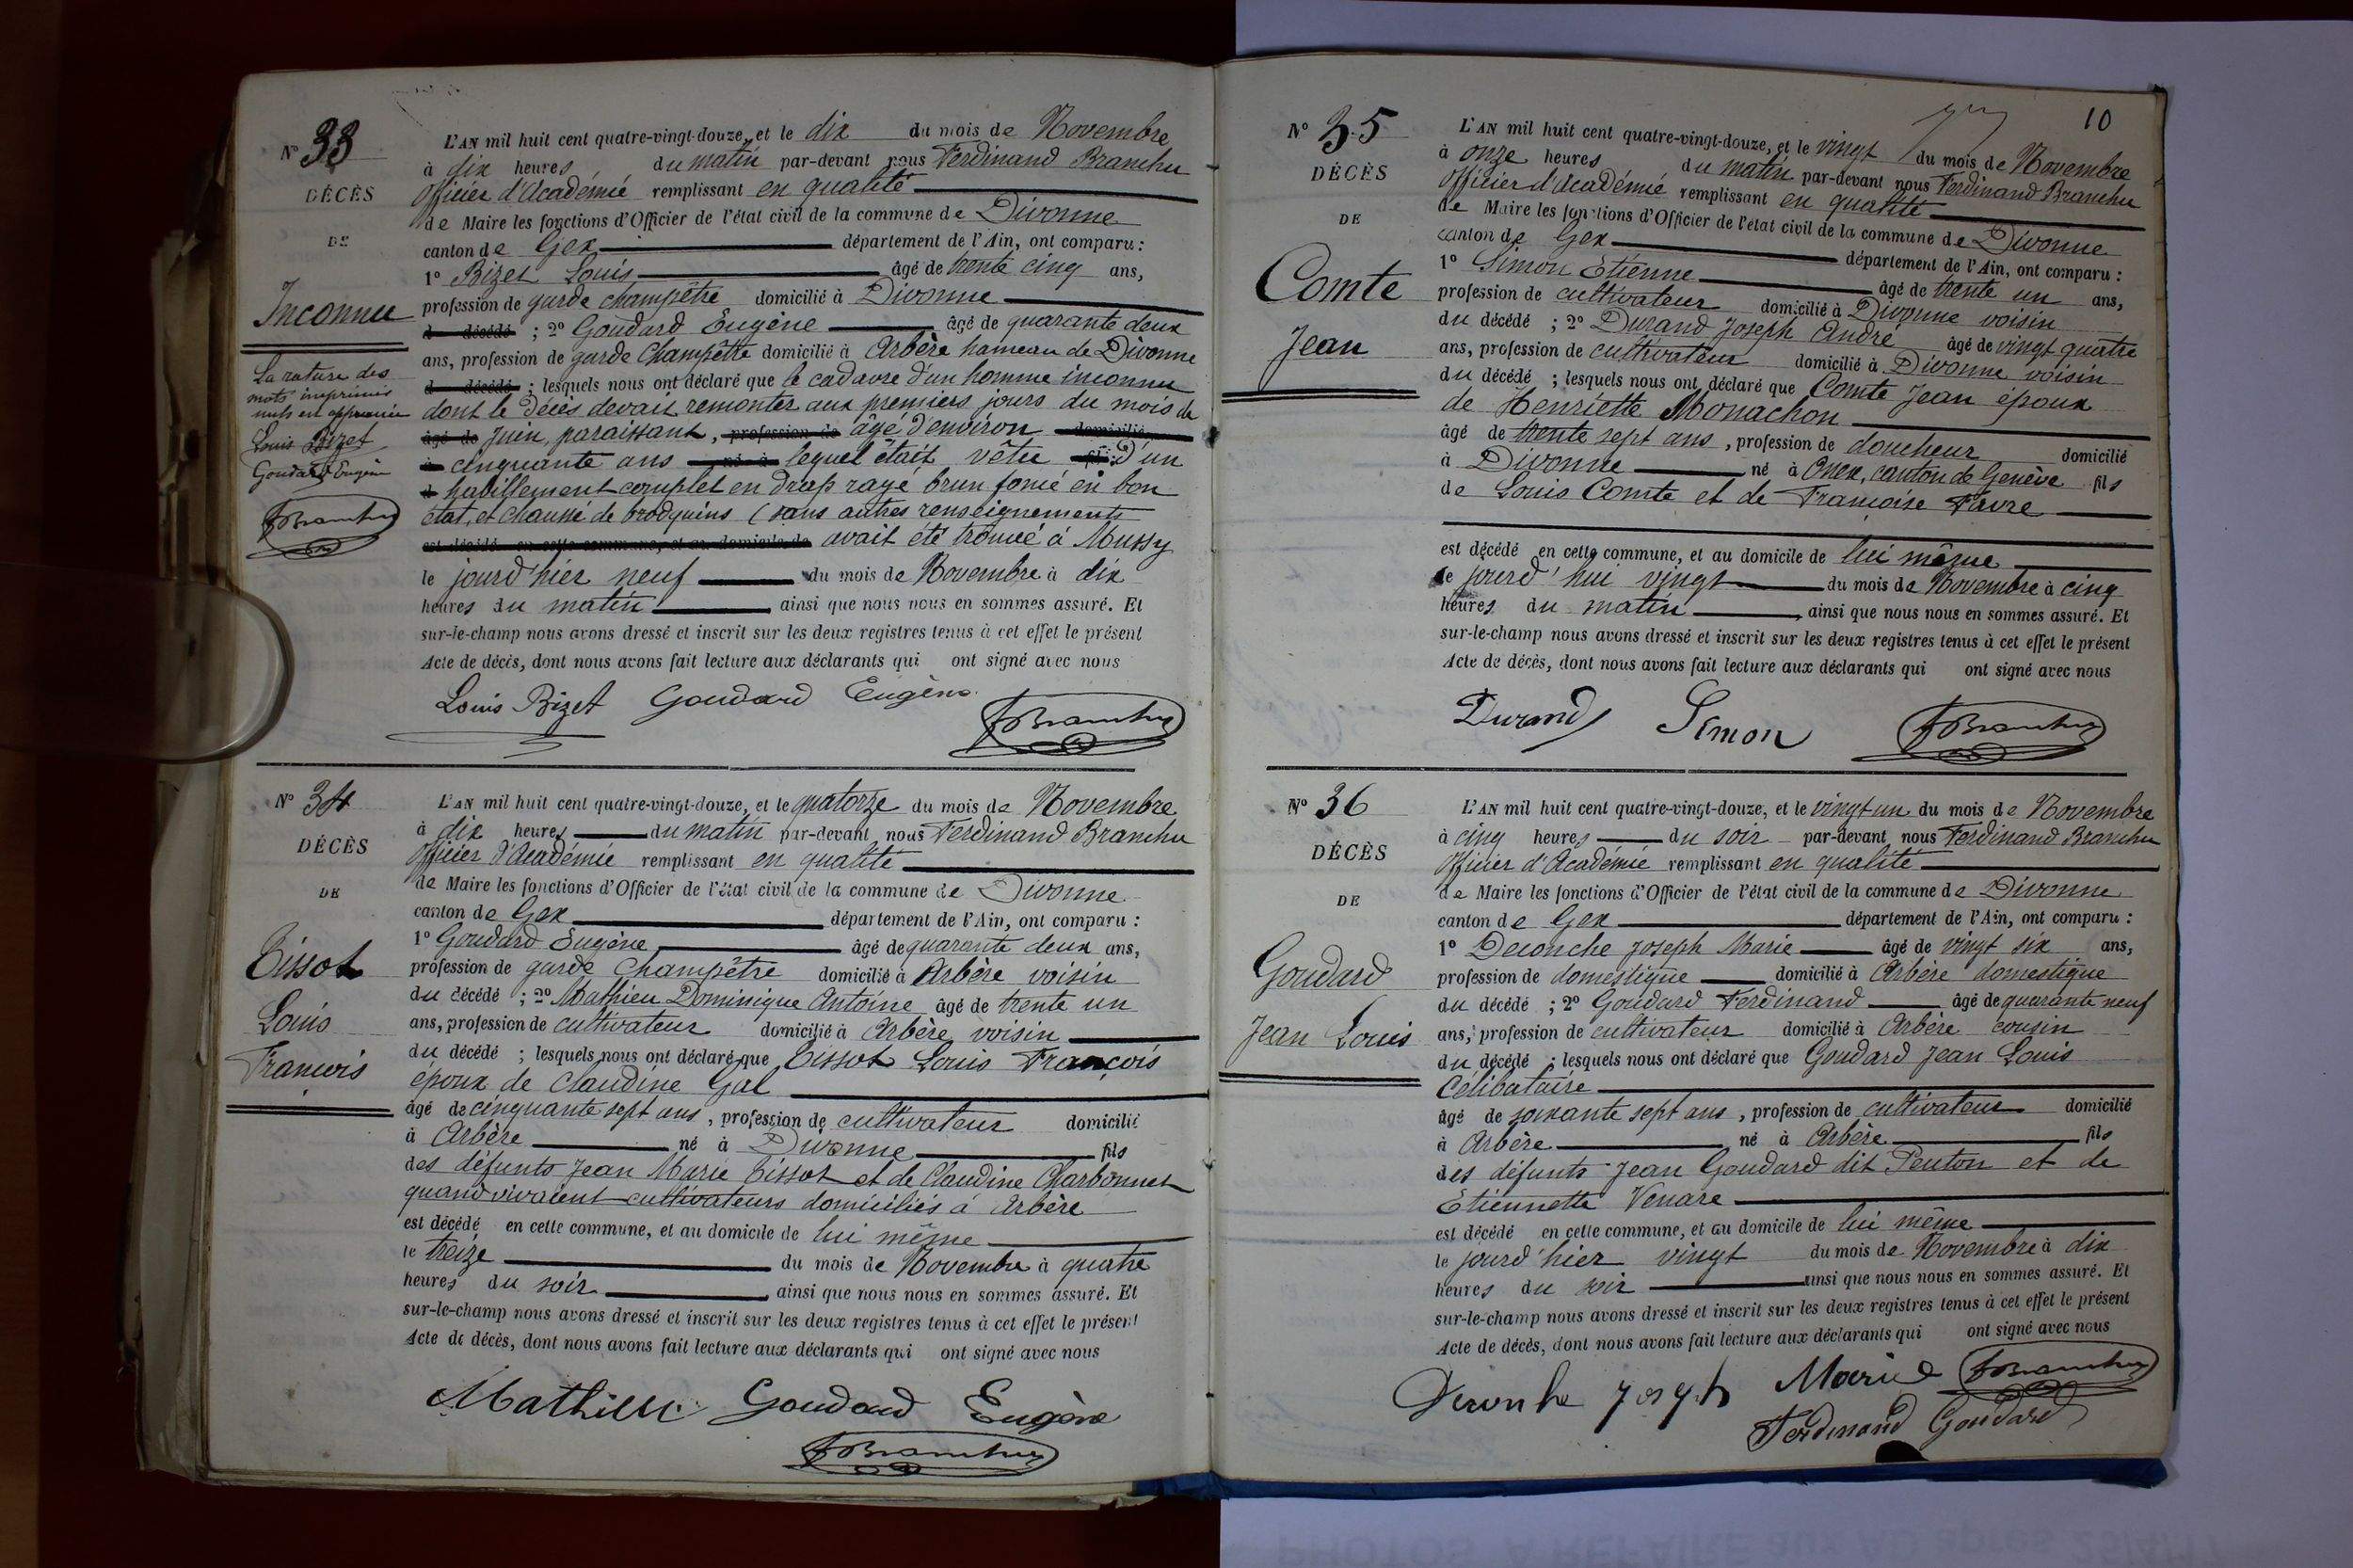 N° 33
DÉCÈS
DE
Inconnu
La rature des
mots imprimés
nuls est approuvée
Louis Bizet
Goudard Eugène
FBranchu
L'AN mil huit cent quatre-vingt-douze, et le dix du mois de Novembre
à dix heures du matin par-devant nous Ferdinand Branchu
Officier d'Académie remplissant en qualité
de Maire les fonctions d'Officier de l'état civil de la commune de Divonne
canton de Gex département de l'Ain, ont comparu :
1° Bizet Louis âgé de trente cinq ans,
profession de garde champêtre domicilié à Divonne
d décédé ; 2° Goudard Eugène âgé de quarante deux
ans, profession de garde Champêtre domicilié à Arbère hameau de Divonne
d décédé ; lesquels nous ont déclaré que le cadavre d'un homme inconnu
dont le décès devait remonter aux premiers jours du mois de
âgé de Juin, paraissant, profession de âgé d'environ domicilié
à cinquante ans né à lequel était vêtu fil d'un
d habillement complet en drap rayé brun foncé en bon
état, et chaussé de brodquins (sans autres renseignements
est décédé en cette commune, et au domicile de avait été trouvé à Mussy
le jourd'hier neuf du mois de Novembre à dix
heures du matin ainsi que nous nous en sommes assuré. Et
sur-le-champ nous avons dressé et inscrit sur les deux registres tenus à cet effet le présent
Acte de décès, dont nous avons fait lecture aux déclarants qui ont signé avec nous
Louis Bizet Goudard Eugène
FBranchu
N° 34
DÉCÈS
DE
Tissot
Louis
François
L'AN mil huit cent quatre-vingt-douze, et le quatorze du mois de Novembre
à dix heures du matin par-devant nous Ferdinand Branchu
Officier d'Académie remplissant en qualité
de Maire les fonctions d'Officier de l'état civil de la commune de Divonne
canton de Gex département de l'Ain, ont comparu :
1° Goudard Eugène âgé de quarante deux ans,
profession de garde Champêtre domicilié à Arbère voisin
du décédé ; 2° Mathieu Dominique Antoine âgé de trente un
ans, profession de cultivateur domicilié à Arbère voisin
du décédé ; lesquels nous ont déclaré que Tissot Louis François
époux de Claudine Gal
âgé de cinquante sept ans, profession de cultivateur domicilié
à Arbère né à Divonne fils
des défunts Jean Marie Tissot et de Claudine Charbonnet
quand vivaient cultivateurs domiciliés à Arbère
est décédé en cette commune, et au domicile de lui même
le treize du mois de Novembre à quatre
heures du soir ainsi que nous nous en sommes assuré. Et
sur-le-champ nous avons dressé et inscrit sur les deux registres tenus à cet effet le présent
Acte de décès, dont nous avons fait lecture aux déclarants qui ont signé avec nous
Mathieu Goudard Eugène
FBranchu
10
N° 35
DÉCÈS
DE
Comte
Jean
L'AN mil huit cent quatre-vingt-douze, et le vingt du mois de Novembre
à onze heures du matin par-devant nous Ferdinand Branchu
Officier d'Académie remplissant en qualité
de Maire les fonctions d'Officier de l'état civil de la commune de Divonne
canton de Gex département de l'Ain, ont comparu :
1° Simon Etienne âgé de trente un ans,
profession de cultivateur domicilié à Divonne voisin
du décédé ; 2° Durand Joseph André âgé de vingt quatre
ans, profession de cultivateur domicilié à Divonne voisin
du décédé ; lesquels nous ont déclaré que Comte Jean époux
de Henriette Monachon
âgé de trente sept ans, profession de doucheur domicilié
à Divonne né à Onex, canton de Genève fils
de Louis Comte et de Françoise Favre
est décédé en cette commune, et au domicile de lui même
le jourd'hui vingt du mois de Novembre à cinq
heures du matin ainsi que nous nous en sommes assuré. Et
sur-le-champ nous avons dressé et inscrit sur les deux registres tenus à cet effet le présent
Acte de décès, dont nous avons fait lecture aux déclarants qui ont signé avec nous
Durand Simon FBranchu
N° 36
DÉCÈS
DE
Goudard
Jean Louis
L'AN mil huit cent quatre-vingt-douze, et le vingt un du mois de Novembre
à cinq heures du soir par-devant nous Ferdinand Branchu
Officier d'Académie remplissant en qualité
de Maire les fonctions d'Officier de l'état civil de la commune de Divonne
canton de Gex département de l'Ain, ont comparu :
1° Deronche Joseph Marie âgé de vingt six ans,
profession de domestique domicilié à Arbère domestique
du décédé ; 2° Goudard Ferdinand âgé de quarante neuf
ans, profession de cultivateur domicilié à Arbère cousin
du décédé ; lesquels nous ont déclaré que Goudard Jean Louis
Célibataire
âgé de soixante sept ans, profession de cultivateur domicilié
à Arbère né à Arbère fils
des défunts Jean Goudard dit Penton et de
Etiennette Venare
est décédé en cette commune, et au domicile de lui même
le jourd'hier vingt du mois de Novembre à dix
heures du soir ainsi que nous nous en sommes assuré. Et
sur-le-champ nous avons dressé et inscrit sur les deux registres tenus à cet effet le présent
Acte de décès, dont nous avons fait lecture aux déclarants qui ont signé avec nous
Deronche Joseph Marie FBranchu
Ferdinand Goudard